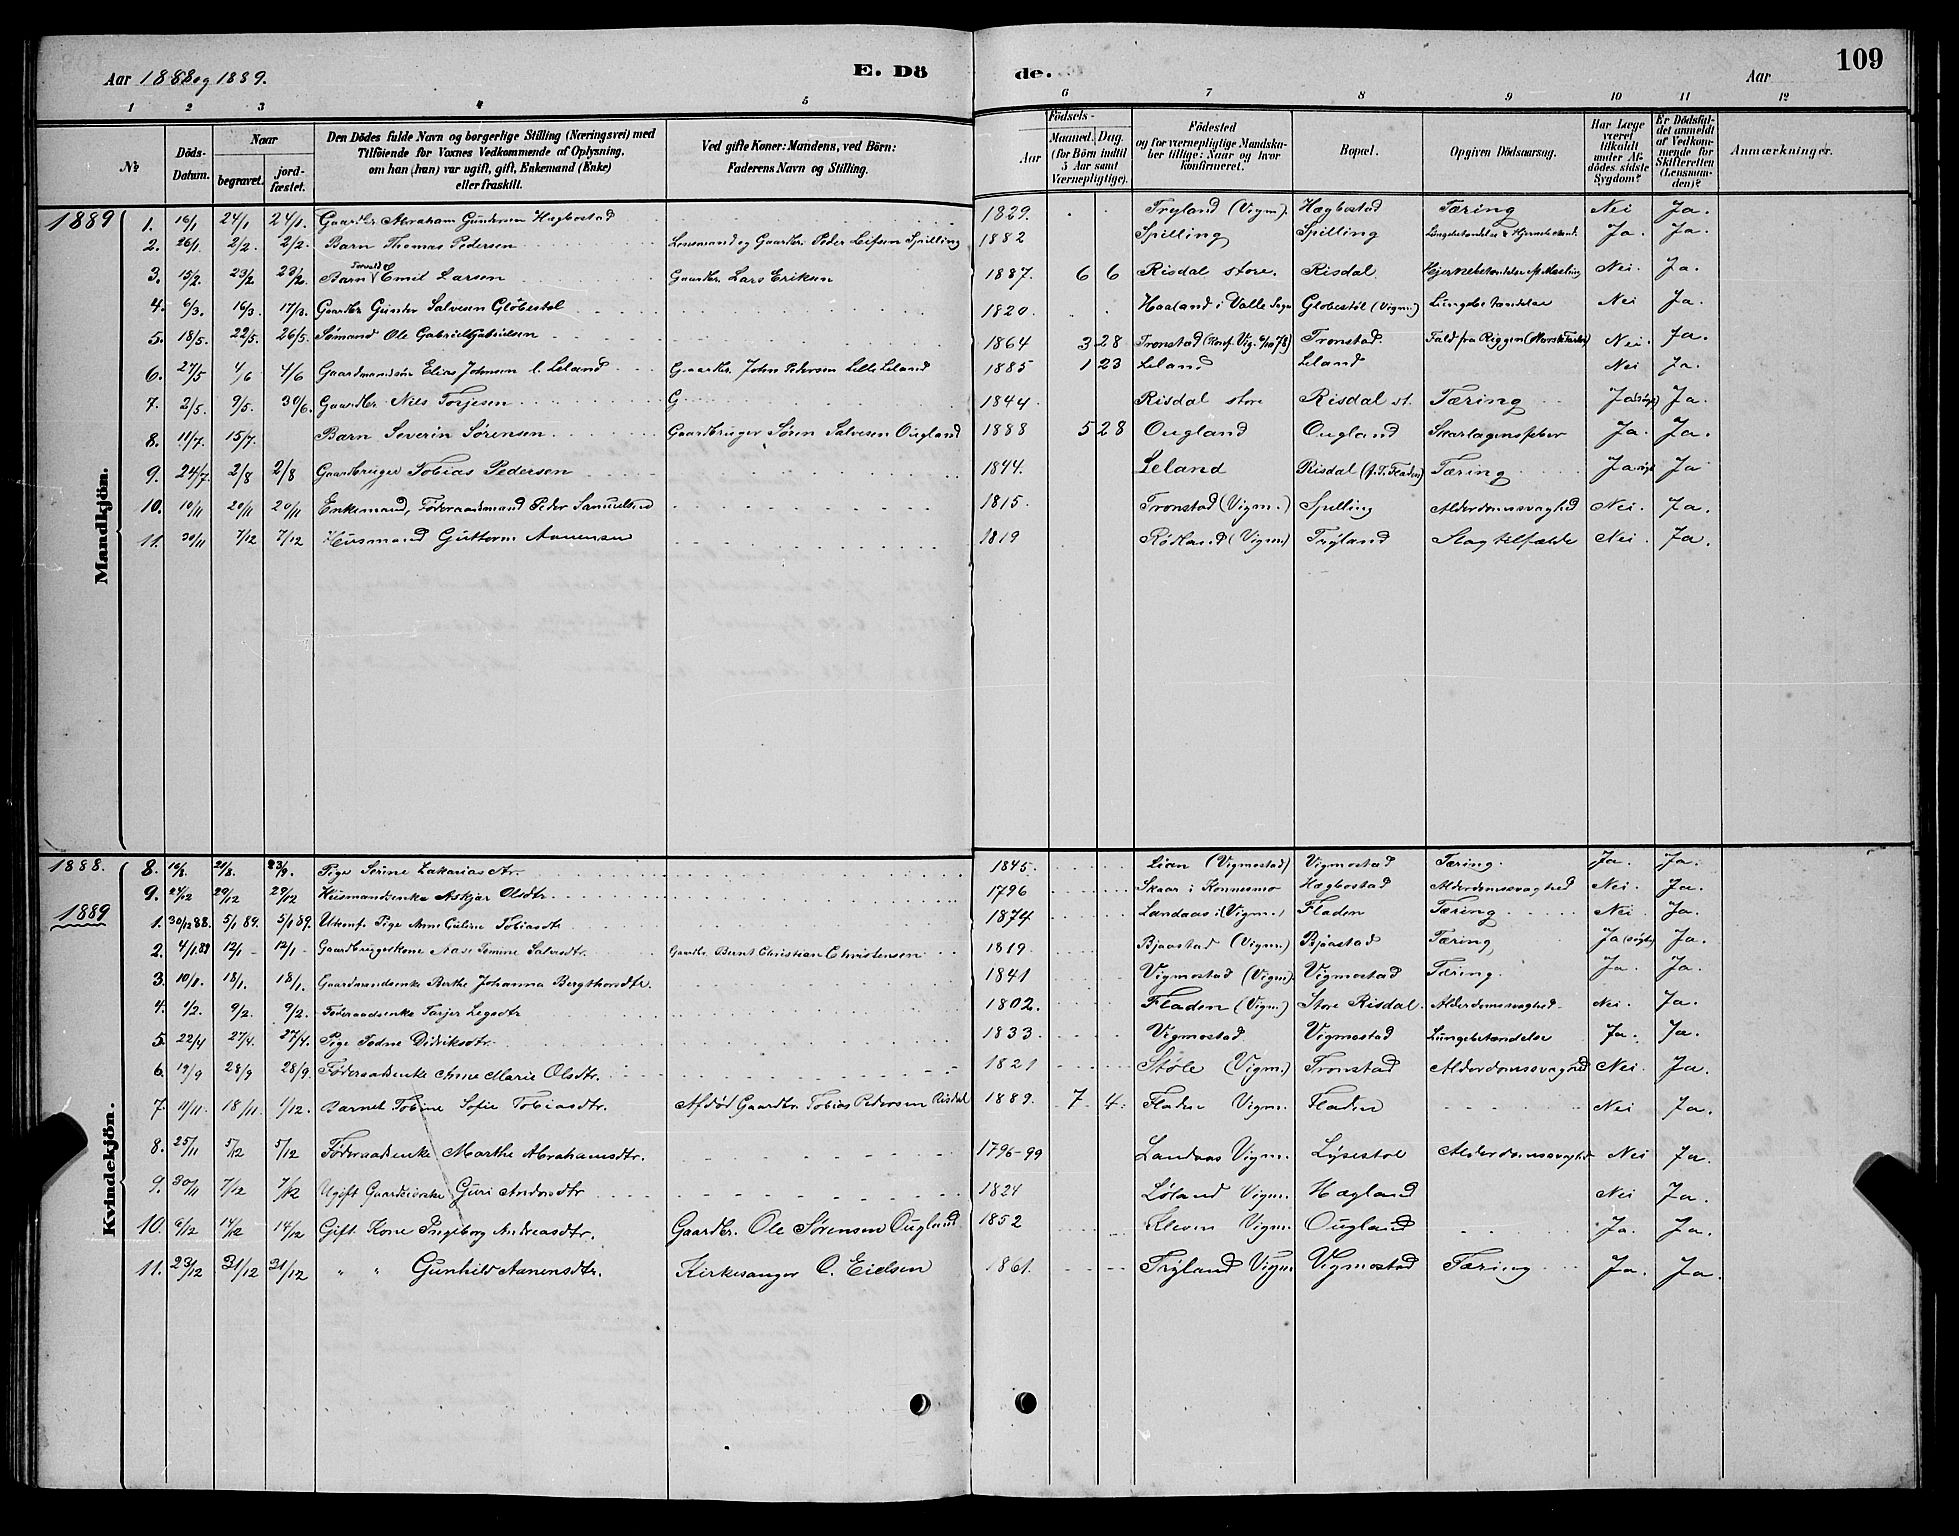 Aar 1888 og 1889. E. Dö de. Aar 109
1 2 3 4 5 6 7 8 9 10 11 12
No Döds-Datum. Naar begravet. jordfæstet. Den Dödes fulde Navn og borgerlige Stilling (Næringsvei) med Tilföiende for Voxnes Vedkommende af Oplysning, om han (hun) var ugift, gift, Enkemand (Enke) eller fraskilt. Ved gifte Koner: Mandens, ved Börn: Faderens Navn og Stilling. Födsels- Aar Maaned. Dag. (for Börn indtil 5 Aar samt Værnepligtige). Födested og for værnepligtige Mandskaber tillige: Naar og hvor konfirmeret. Bopæl. Opgiven Dödsaarsag. Har Læge været tilkaldt under Afdödes sidste Sygdom? Er Dödsfaldet anmeldt af Vedkommende for Skifteretten (Lensmanden)? Anmærkninger.
Mandkjön.
1889 1. 16/1 24/1 24/1. Gaardbr. Abraham Gundersen Hægbostad 1829. Tryland (Vigm). Hægbostad Tæring Nei Ja.
2. 26/1. 2/2. 2/2. Barn Thomas Pedersen Lensmand og Gaardbr. Peder Leifsen Spilling 1882 Spilling Spilling Lungebetændelse & Ja. Ja.
3. 15/2. 23/2 23/2. Barn Emil Larsen Gaardbr. Lars Eriksen 1887. 6 6 Risdal store. Risdal Hjernebetændelse eft. Mæsling Nei. Ja.
4. 6/3. 16/3. 17/3. Gaardbr. Gunder Salvesen Glöbestöl 1820. Haaland i Valle Sogn Globestöl (Vigm.) Lungebetændelse Nei Ja.
5. 18/5. 22/5. 26/5. Sømand Ole Gabriel Gabrielsen 1864 3 28 Tronstad (Konf. Vig. Tronstad. Fald fra Riggen Nei. Ja.
6. 27/5 4/6 4/6 Gaardmandssön Elias Johnsen l. Leland Gaardbr. John Pedersen Lille Leland 1885 1 23 Leland Leland Nei Ja.
7. 2/5. 9/5. 30/6. Gaardbr. Nils Torjesen G 1844. Risdal store Risdal st. Tæring Ja (søgt) Ja.
8. 11/7. 15/7. Barn Severin Sörensen Gaardbruger Sören Salvesen Ougland 1888 5 28 Ougland Ougland Skarlagensfeber Ja. Ja.
9. 24/7. 2/8 2/8 Gaardbruger Tobias Pedersen 1844. Leland Risdal Tæring Ja søgt Ja
10. 10/11 20/11 20/11 Enkemand, Föderaadsmand Peder Samuelsen 1815. Tronstad (Vigm.) Spilling Alderdomssvaghed Nei. Ja.
11. 30/11 7/12 7/12 Husmand Guttorm Aanensen 1819 Rödland (Vigm.) Tryland Slagtilfælde Nei. Ja.
Kvindekjön.
1888. 8. 16/8. 21/8. 23/9. Pige Serine Zakariasdtr. 1845. Lian (Vigmostad) Vigmostad Tæring. Ja. Ja.
9. 24/12 29/12 29/12 Husmandsenke Askjær Olsdtr. 1796 Skaar i Konnesmo Hægbostad Alderdomssvaghed Nei. Ja.
1889 1. 30/12 88. 5/1 89. 5/1 89. Ukonf. Pige Anne Guline Tobiasdtr 1874 Landaas i (Vigm.) Fladen Tæring Nei. Ja.
2. 4/1 89 12/1 12/1 Gaardbrugerkone Aase Tomine Salvesdtr. Gaardbr. Bernt Christian Christensen 1819. Bjaastad (Vigm.) Bjaastad Tæring, Ja (søgt) Ja.
3. 10/1. 18/1. 18/1. Gaardmandsenke Berthe Johanna Bergthorsdtr. 1841 Vigmostad (Vigm). Vigmostad Tæring. Ja. Ja.
4. 1/2. 9/2. 9/2. Föderaadsenke Tarjer Legedtr 1802. Fladen (Vigm.) Store Risdal. Alderdomssvaghed Nei. Ja.
5. 22/4 27/4. 27/4. Pige Todne Didriksdtr. 1833 Vigmostad. Vigmostad Lungebetændelse Ja. Ja.
6. 19/9 28/9 28/9. Föderaadsenke Anne Marie Olsdtr. 1821 Støle (Vigm.) Tronstad Alderdomssvaghed Nei. Ja.
7. 11/11. 18/11 1/12. Barnet Tobine Sofie Tobiasdtr. Afdöd Gaardbr. Tobias Pedersen Risdal 1889. 7. 4. Fladen Vigm. Fladen Nei Ja.
8. 25/11 5/12 5/12 Föderaadsenke Marthe Abrahamsdtr. 1796-99 Landaas Vigm. Lysestöl Alderdomssvaghed Nei Ja.
9. 30/11 7/12 7/12 Ugift Guri Andersdtr 1824 Löland Vigm. Hægland Nei Ja.
10. 6/12 14/12 14/12 Gift Kone Ingeborg Andreasdtr. Gaardbr. Ole Sørensen Ougland 1852 Kleven Vigm. Ougland Ja. Ja.
11. 23/12 31/12 31/12 " " Gunhild Aanensdtr. Kirkesanger O. Eielsen 1861. Tryland Vigm. Vigmostad Tæring Ja. Ja.